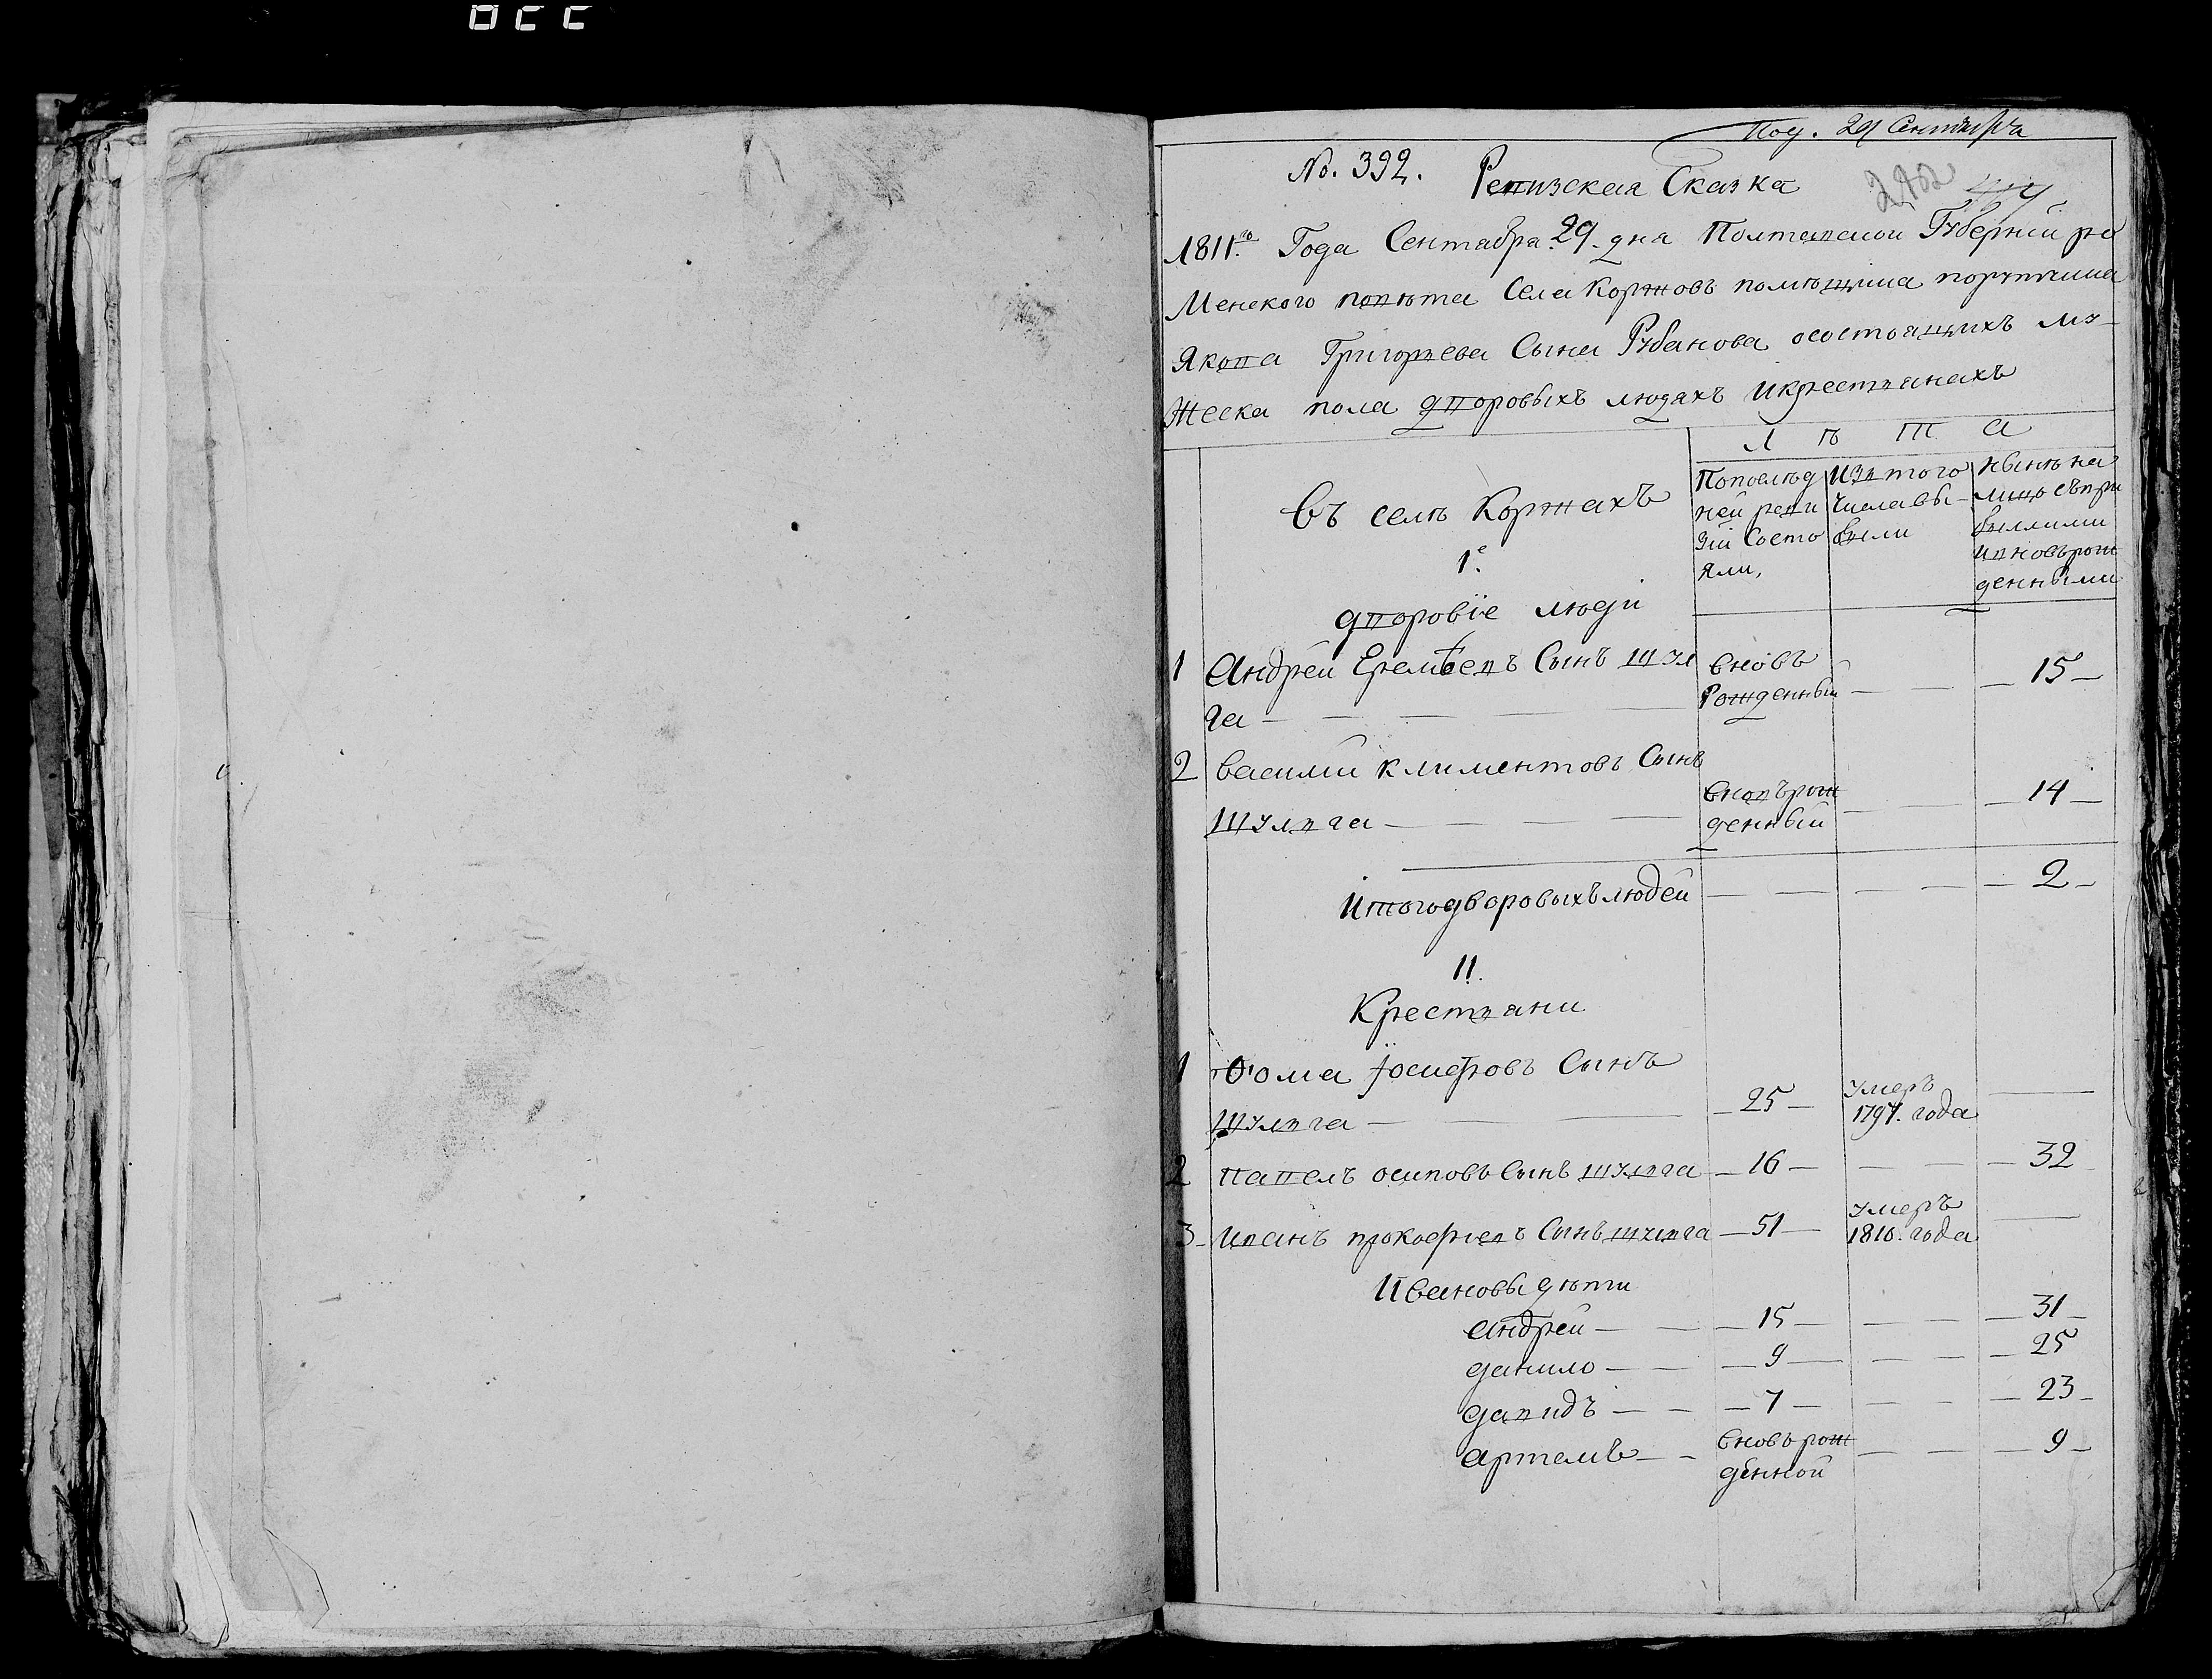 Под. 29 Сентября
No. 392.
Ревизская Сказка
1811го Года Сентабра 29. дня Полтавской Губернiи ро
Менского повѣта Села Коржовъ помѣщика порутчика
Якова Григорьева Сына Рубанова осостоящихъ му-
Жеска пола дворовыхъ людяхъ Икрестьянахъ
Л ѣ т а
Въ селѣ Коржахъ
1е.
дворовiе люди
Попослѣд
ней реви
зiи Состо
яли,
Изъ того
Числа вы-
были
Нынѣ на
лицо съпри
былыми
ивновьрож
денными
1 Андрей Еремѣевъ Сынъ шул вновь 15
га Рожденный
2 Василiй Климентовъ Сынъ
Шульга вновърож 14
денный
Итогодворовыхълюдей 2
II.
Крестьяни
1 Фома Iосифовъ Сынъ
Шульга 25 умеръ
1797. года
2 Павелъ осиповъ Сынъ шульга 16 32
3 Иванъ прокофиевъ Сынъ шульга 51 умеръ
1810. года
Ивановы дѣти
Андрей 15 31
данило 9 25
давидъ 7 23
Артемъ вновь рож 9
денной